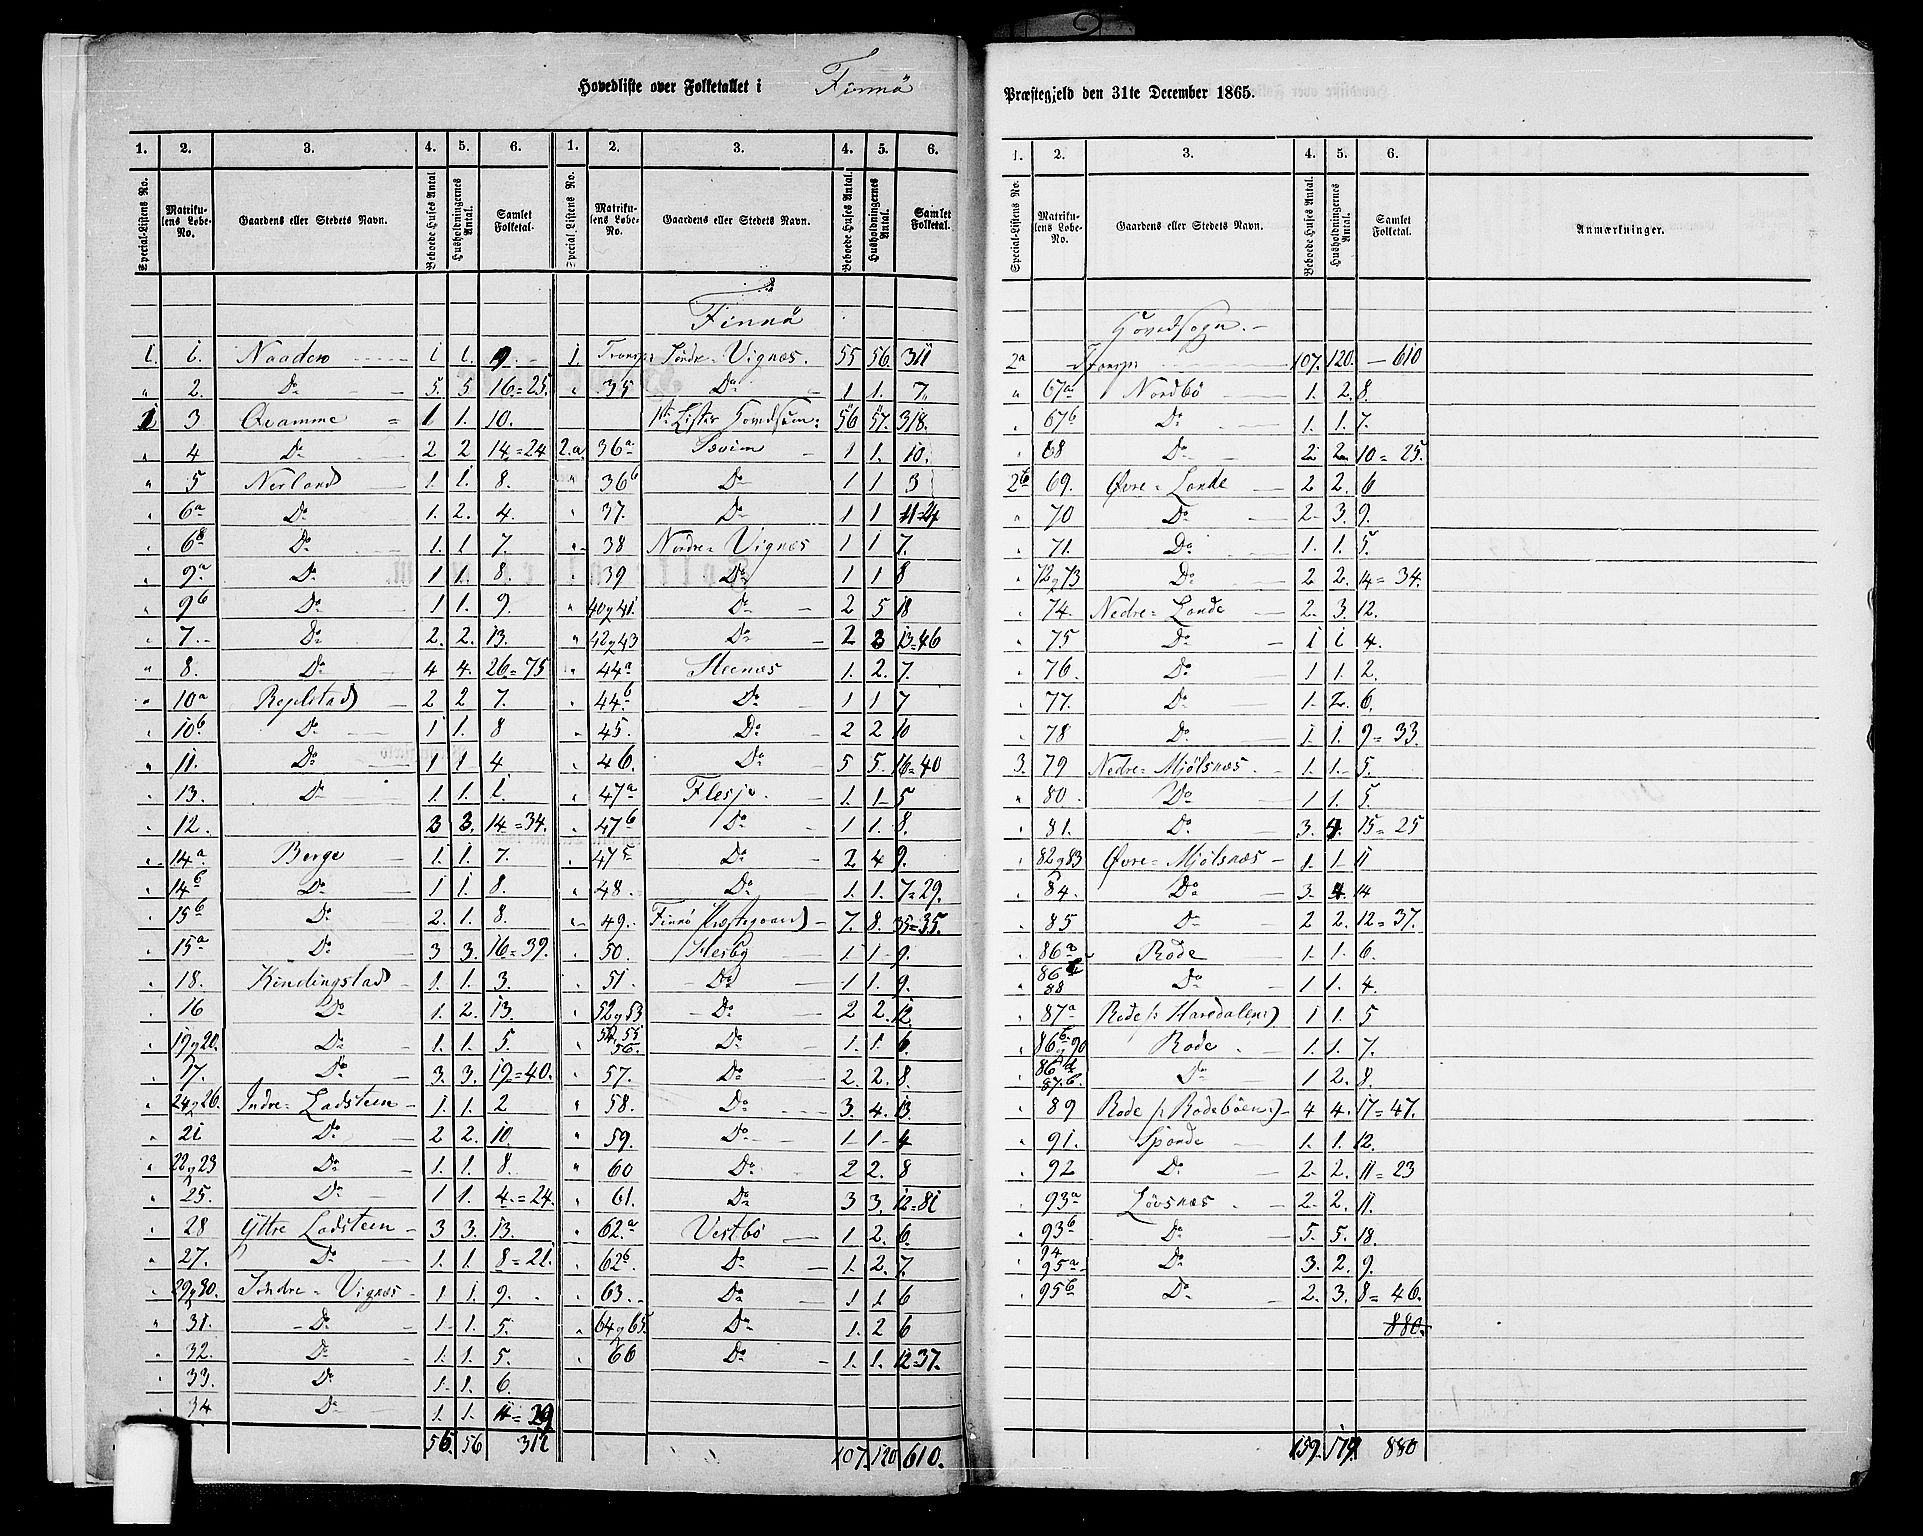 Hovedliste over Folketallet i Finnö
Præstegjeld den 31te December 1865.
1. 2. 3. 4. 5. 6. 1. 2. 3. 4. 5. 6.
Special-Listens No. Matrikulens Løbe-No. Gaardens eller Stedets Navn. Beboede Huses Antal Husholdningernes Antal. Samlet Folketal. Special Listens No. Matrikulens Løbe-No. Gaardens eller Stedets Navn. Beboede Huses Antal. Husholdningernes Antal. Samlet Folketal.
Finnö
1. 1. Naaden 1 1. 9
" 2. Do 5. 5 16 = 25.
1 3 Qvamme 1 1. 10.
" 4 Do 2 2 14 = 24
" 5 Nerland 1. 1. 8.
" 6a Do 1. 2. 4.
" 6b Do 1. 1 7.
" 9a Do 1 1 8.
" 9b Do 1 1. 9.
" 7. Do 2. 2. 13.
" 8. Do 4 4. 26. = 75
" 10a Reilstad 2 2 7.
" 10b Do 1 1. 8
" 11. Do 1 1. 4
" 13. Do 1. 1. 1.
" 12. 3 3. 14 = 34.
" 14a Berge 1. 1. 7.
" 14b Do 1 1. 8.
" 15b Do 2. 1. 8.
" 15a Do 3 3. 16 = 39.
" 18. Kindingstad 1. 1. 3.
" 16 Do 1. 2. 13.
" 19 g 20. Do 1. 1. 5.
" 17. Do 3. 3. 19 = 40.
" 24 g 26. Indre Ladsteen 1. 1. 2
" 21 Do 2 2. 10.
" 22 g 23 Do 1. 1. 8.
" 25. Do 1 1. 4. = 24.
" 28 Yttre Ladsteen 3 3. 13.
" 27. Do 1. 1. 8 = 21.
" 29 g 30. Söndre Vignæs 1 1. 9.
" 31. Do 1. 1. 5.
" 32. Do 1. 1. 5.
" 33. Do 1. 1. 6.
" 34 Do 1. 1. 11 = 39
56. 56 312
1. Transp: Söndre Vignæs. 55 56. 311
" 35 Do 1 1. 7.
1ste Liste Hovedsum: 56 57. 318.
2.a. 36a Sevim 1 1. 10.
" 36b Do 1 1 3
" 37. Do 1 1 11 = 24
" 38 Nordre Vignæs 1 1 7.
" 39 Do 1 1 8
" 40 g 41. Do 2 5 18
" 42 g 43 Do 2 3 13 = 46
" 44a Steenæs 1. 2. 7.
" 44b Do 1 1 7
" 45. Do 2 2 10
" 46. Do 5 5. 16 = 40
" 47a Flesje 1. 1 5
" 47b Do 1 1. 8.
" 47c Do 2 4 9.
" 48. Do 1. 1. 7 = 29.
" 49. Finnö Præstegaard 7. 8. 35 = 35.
" 50. Hesby 1 1 9.
" 51. Do 1 1. 9.
" 52 g 53 Do 2 2. 12.
" 54, 55 56. Do 1. 1. 6.
" 57. Do 2. 2. 8.
" 58. Do 3. 4. 13.
" 59. Do 1 1 4
" 60 Do 2 2. 8
" 61. Do 3 3. 12 = 81
" 62a Vestbö 1 2. 6.
" 62b Do 1. 2. 7.
" 63. Do 1 1 6
" 64 g 65. Do 1. 2 6
" 66 Do 1. 1. 12 = 37.
107. 120 610.
1. 2. 3. 4. 5. 6.
Special-Listens No. Matrikulens Løbe-No. Gaardens eller Stedets Navn. Beboede Huses Antal. Husholdningernes Antal. Samlet Folketal. Anmærkninger.
Hovedsogn.
2a Transp: 107. 120. 610
" 67a Nordbö 1. 2. 8.
" 67b Do 1. 1. 7.
" 68 Do 2 2 10 = 25.
2b 69. Øvre Lande 2 2. 6
" 70 Do 2. 3. 9.
" 71. Do 1. 1. 5.
" 72 g 73 Do 2 2. 14 = 34.
" 74. Nedre Lande 2. 3. 12.
" 75 Do 1 1 4
" 76. Do 1 1. 2.
" 77. Do 1. 2. 6.
" 78 Do 1. 1. 9 = 33.
3. 79 Nedre Mjölsnæs 1. 1. 5.
" 80. Do 1 1. 5.
" 81. Do 3. 4. 15 = 25
" 82 g 83 Øvre Mjölsnæs 1. 1 11
" 84. Do 3. 4. 14
" 85 Do 2 2. 12 = 37.
" 86a Rode 1. 1. 6.
" 86c 88 Do 1 1. 4.
" 87a Rode /: Haredalen:/ 1 1. 5
" 86b g 90 Rode 1. 1. 7.
" 86d 87.b. Do 1 2. 8.
" 89 Rode /: Rodeböen:/ 4 4. 17 = 47.
" 91. Spande 1. 1. 12.
" 92 Do 2. 2. 11 = 23
" 93a Lövsnæs 2. 2. 11.
" 93b Do 5. 5. 18.
" 94 95a Do 3. 2. 9.
" 95b Do 2. 3. 8 = 46.
880.
159. 179. 880